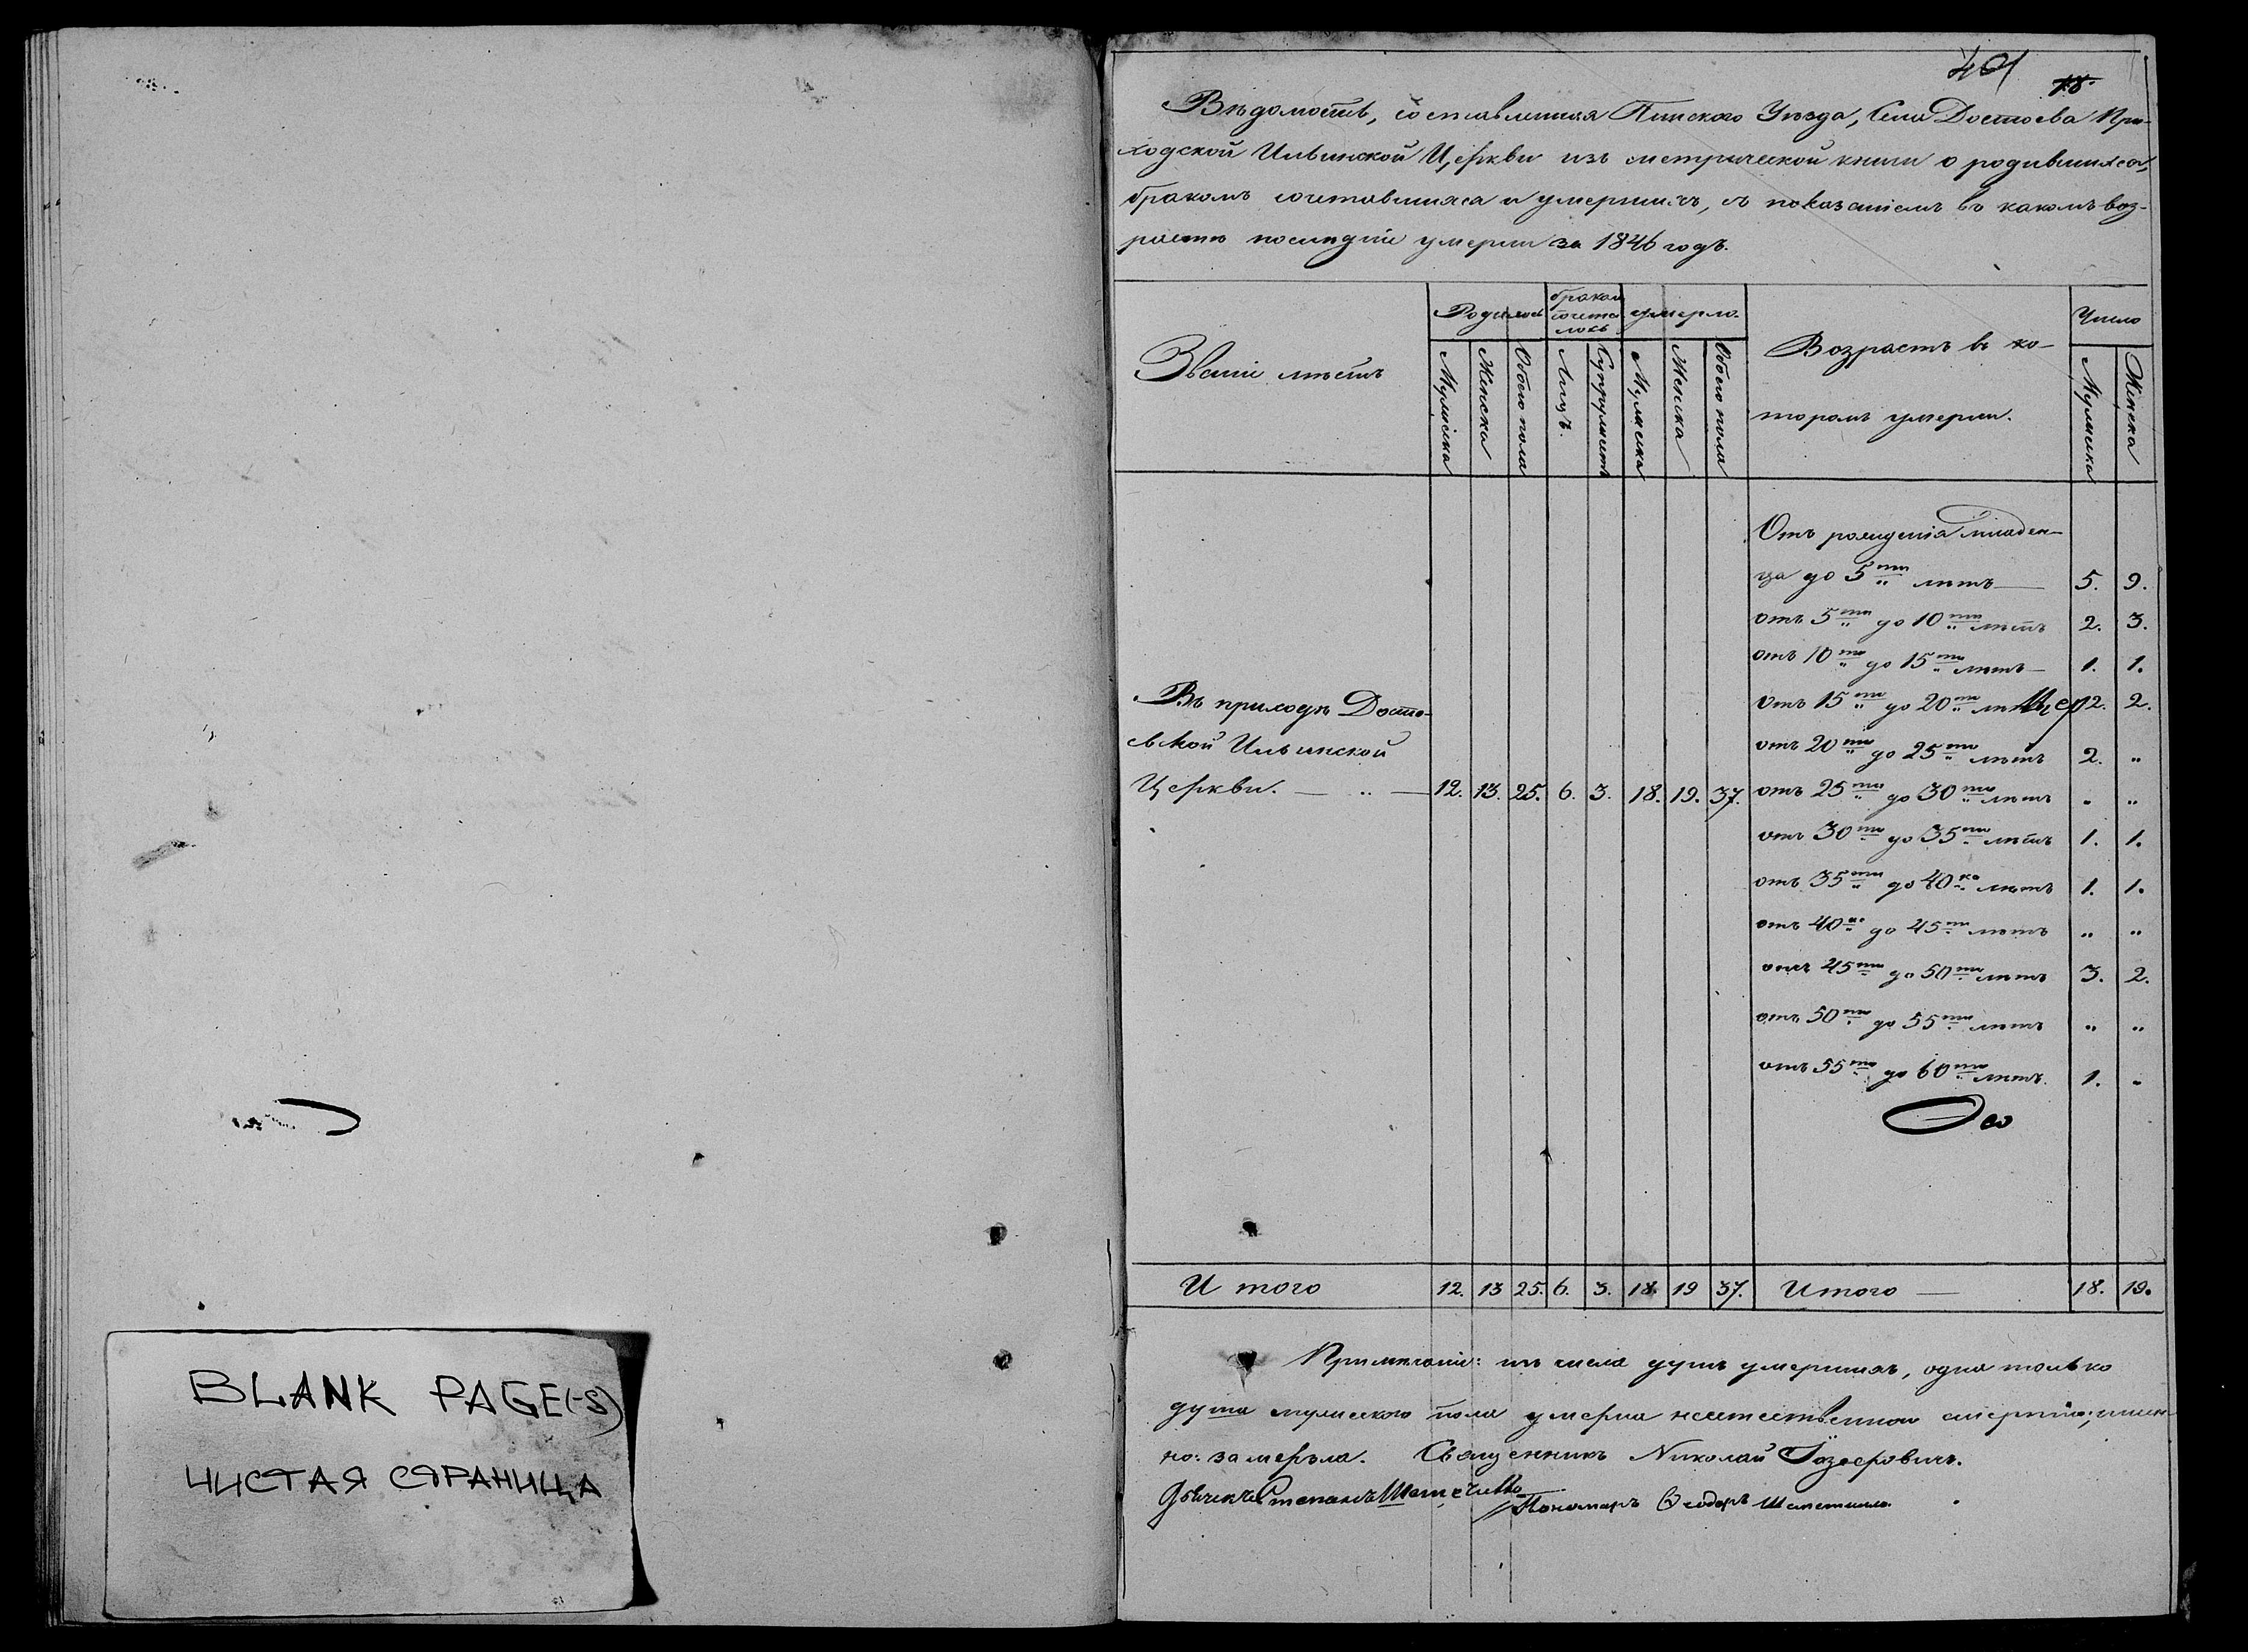 BLANK PAGE(-S)
ЧИСТАЯ СТРАНИЦА
401
18.
Вѣдомость, составленная Пинскаго Уѣзда, Села Достоева При-
ходской Ильинской Церкви изъ метрической книги о родившихся,
бракомъ сочетавшихся и умершихъ, съ показаніемъ въ какомъ воз-
растѣ послѣдніе умерли за 1846 годъ.
Званіе мѣстъ
Родилось
бракомъ сочета лось
умерло.
Возрастъ въ ко-
торомъ умерли.
Число
Мужеска
Женска
Обоего пола
Лицъ.
Супружествъ
Мужеска
Женска
Обоего пола
Мужеска
Женска
Отъ рожденія младен-
ца до 5ти лѣтъ 5. 9.
отъ 5ти до 10ти лѣтъ 2. 3.
отъ 10ти до 15ти лѣтъ 1. 1.
отъ 15ти до 20ти лѣтъ 2. 2.
отъ 20ти до 25ти лѣтъ 2. "
отъ 25ти до 30ти лѣтъ " "
отъ 30ти до 35ти лѣтъ 1. 1.
отъ 35ти до 40ка лѣтъ 1. 1.
отъ 40ка до 45ти лѣтъ " "
отъ 45ти до 50ти лѣтъ 3. 2.
отъ 50ти до 55ти лѣтъ " "
отъ 55ти до 60ти лѣтъ. 1. "
Въ приходѣ Досто-
евской Ильинской
Церкви. — " — 12. 13. 25. 6. 3. 18. 19. 37.
Итого 12. 13 25. 6. 3. 18. 19 37. Итого — 18. 19.
Примѣчаніе: изъ числа душъ умершихъ, одна только
душа мужескаго пола умерла неестественною смертію; имен-
но: замерзла. Священникъ Николай Іозефовичъ.
Дьячекъ Степанъ
Пономарь Ѳеодоръ